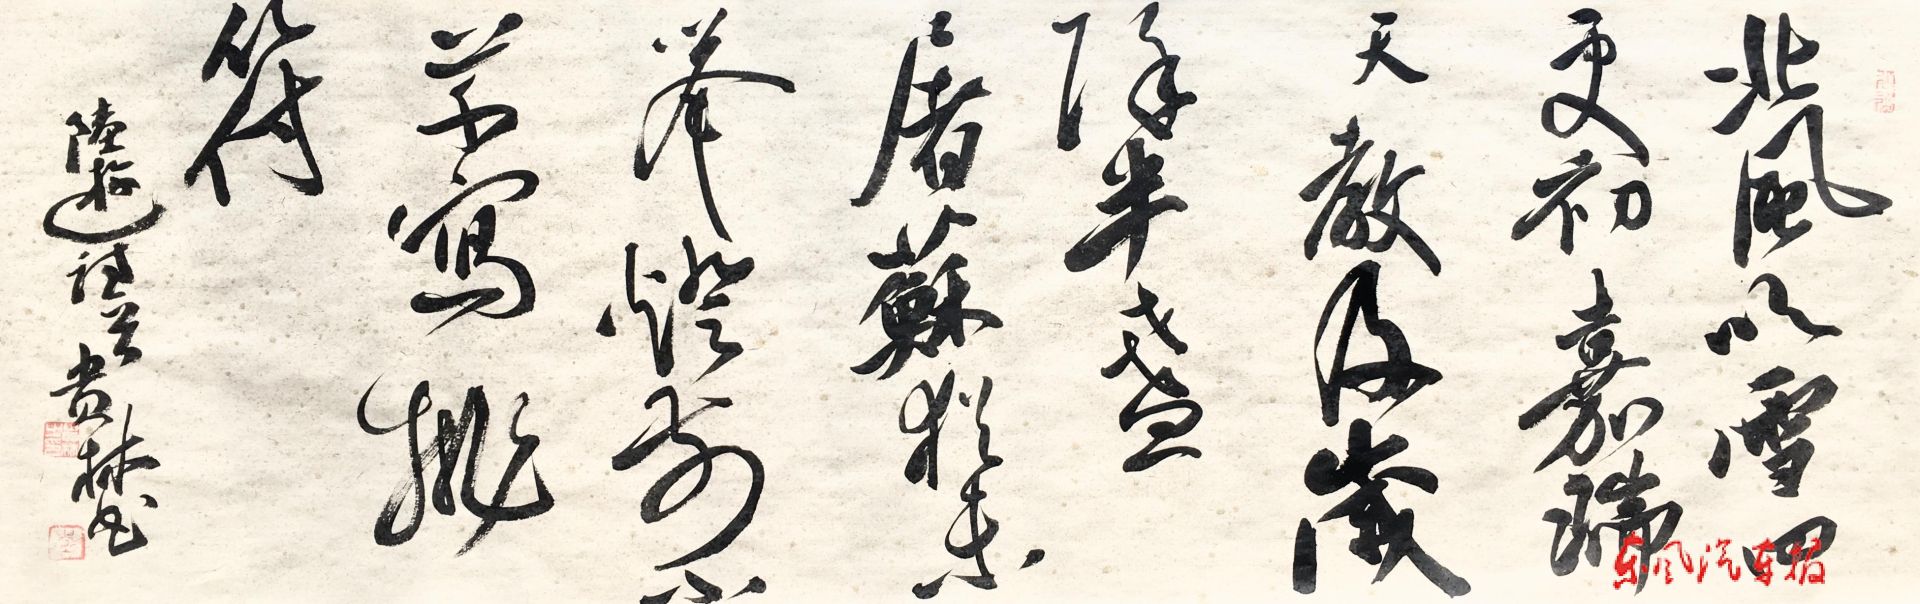 北風吹雪四
更初嘉瑞
天教及歲
除半盞
屠蘇猶未
舉燈前小
草寫桃
符
陸遊詩一首 贵林书
东风汽车报